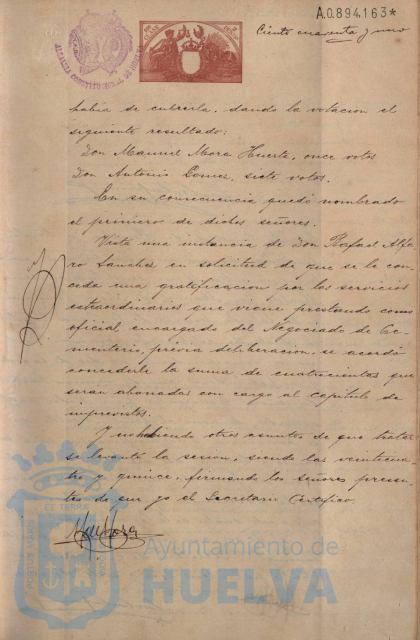 A.0.894,163*
Ciento cuarenta y uno
había de cubrirla, dando la votación el
siguiente resultado:
Don Manuel Mora Huerta, once votos
Don Antonio Gomez, siete votos.
En su consecuencia quedó nombrado
el primero de dichos señores.
Vista una instancia de Don Rafael Alfa-
ro Sanchez en solicitud de que se le con-
ceda una gratificacion por los servicios
extraordinarios que viene prestando como
oficial encargado del Negociado de Ce-
menterio, prévia deliberacion, se acordó
concederle la suma de cuatrocientas que
serán abonadas con cargo al capítulo de
imprevistos.
Y no habiendo otros asuntos de que tratar
se levantó la sesion, siendo las veinticua-
tro y quince, firmando los señores presen-
tes de que yo el Secretario Certifico
Ayuntamiento de
HUELVA